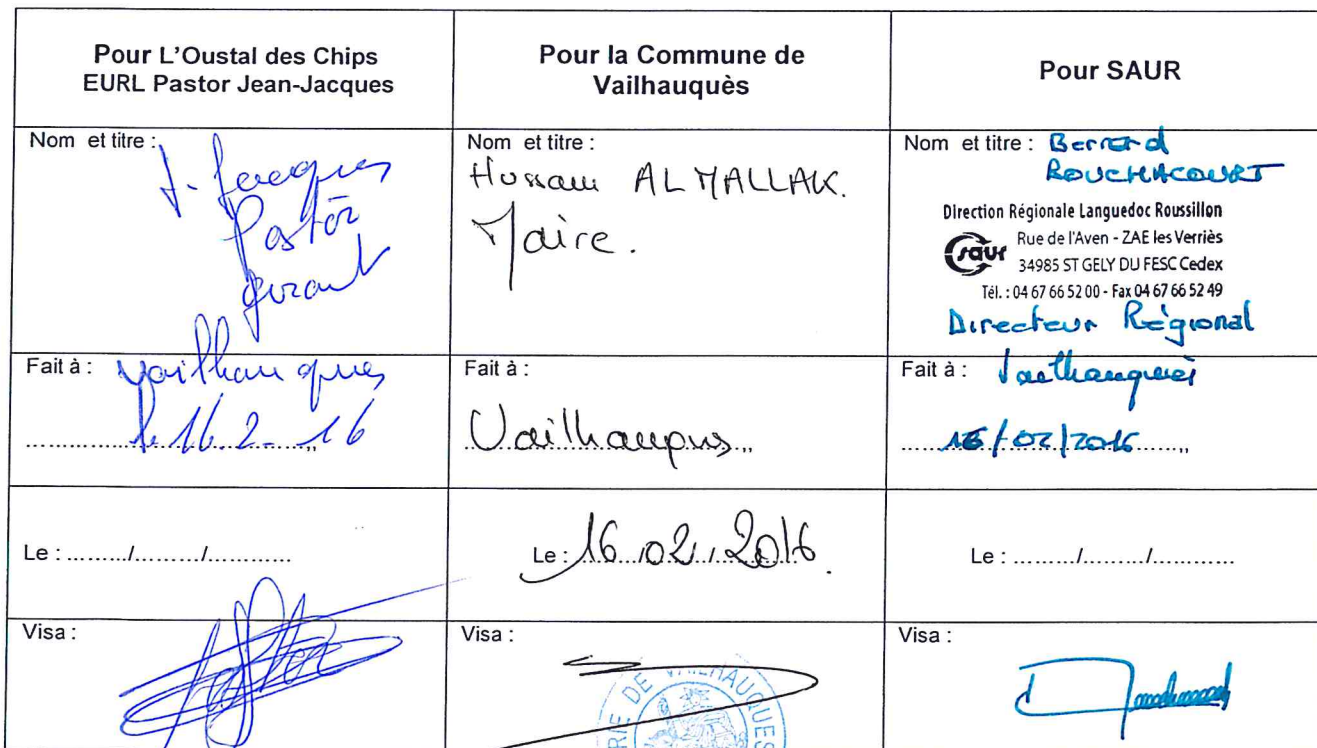 Pour L'Oustal des Chips
EURL Pastor Jean-Jacques
Pour la Commune de
Vailhauquès
Pour SAUR
Nom et titre :
J. Jacques
Pastor
gérant
Nom et titre :
Hussam AL MALLAK.
Maire.
Nom et titre : Bernard
BOUCHACOURT
Direction Régionale Languedoc Roussillon
saur
Rue de l'Aven - ZAE les Verriès
34985 ST GELY DU FESC Cedex
Tél. : 04 67 66 52 00 - Fax 04 67 66 52 49
Directeur Régional
Fait à : Vailhauques
le 16.2-16
Fait à :
Vailhauques
Fait à : Vailhauques
16/02/2016
Le : ........./........./............
Le : 16/02/2016.
Le : ........./........./............
Visa :
Visa :
MAIRIE DE VAILHAUQUES
Visa :